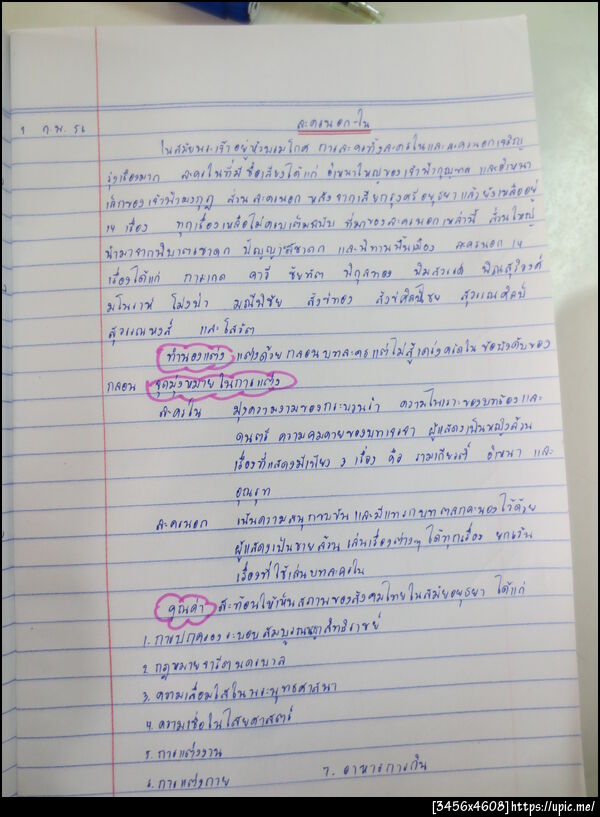 1 ก.พ. 56 ละครนอก-ใน
ในสมัยพระเจ้าอยู่หัวบรมโกศ การละครทั้งละครในและละครนอกเจริญ
รุ่งเรืองมาก ละครในที่มีชื่อเสียงได้แก่ อิเหนาใหญ่ของเจ้าฟ้ากุณฑล และอิเหนา
เล็กของเจ้าฟ้ามงกุฎ ส่วนละครนอก หลังจากเสียกรุงศรีอยุธยาแล้วยังเหลืออยู่
14 เรื่อง ทุกเรื่องเหลือไม่ครบเต็มฉบับ ที่มาของละครนอกเหล่านี้ ส่วนใหญ่
นำมาจากนิบาตชาดก ปัญญาสชาดก และนิทานพื้นเมือง ละครนอก 14
เรื่องได้แก่ การะเกด คาวี ไชยทัต พิกุลทอง พิมสวรรค์ พิณสุริวงศ์
มโนราห์ โม่งป่า มณีพิชัย สังข์ทอง สังข์ศิลป์ชัย สุวรรณศิลป์
สุวรรณหงส์ และ โสวัต
ทำนองแต่ง แต่งด้วยกลอนบทละครแต่ไม่สู้เคร่งครัดในข้อบังคับของ
กลอน จุดมุ่งหมายในการแต่ง
ละครใน มุ่งความงามของกระบวนรำ ความไพเราะของบทร้องและ
ดนตรี ความคมคายของบทเจรจา ผู้แสดงเป็นหญิงล้วน
เรื่องที่แสดงมีเพียง 3 เรื่อง คือ รามเกียรติ์ อิเหนา และ
อุณรุท
ละครนอก เน้นความสนุกขบขัน และมีแทรกบทตลกคะนองไว้ด้วย
ผู้แสดงเป็นชายล้วน เล่นเรื่องต่างๆ ได้ทุกเรื่อง ยกเว้น
เรื่องที่ใช้เล่นบทละครใน
คุณค่า สะท้อนให้เห็นสภาพของสังคมไทยในสมัยอยุธยา ได้แก่
1. การปกครองระบอบสมบูรณาญาสิทธิราชย์
2. กฎหมายจารีตนครบาล
3. ความเลื่อมใสในพระพุทธศาสนา
4. ความเชื่อในไสยศาสตร์
5. การแต่งงาน
6. การแต่งกาย 7. อาหารการกิน
[3456x4608] https://upic.me/